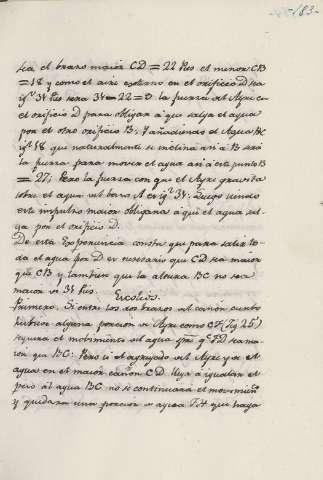 183
sea el brazo maior CD = 22 Pies el menor CB
= 18 y como el aire externo en el orificio D sea
igl 34 Pies sera 34 - 22 = D. la fuerza del Ayre en
el orificio D para obligar à que salga el agua
por el otro orificio B: Y añadiendo el Agua BC
igl 18 que naturalmente se inclina acia B será
la fuerza para mover el agua acia este punto B
= 27; Pero la fuerza con que el Ayre gravita
sobre el agua del baso A es igl 34: Luego siendo
este impulso maior obligara à que el agua sal-
ga por el orificio D.
De esta Experiencia consta que para salir to-
da el agua por D es nesesario que CD sea maior
que CB y tambien que la altura BC no sea
maior de 34 Pies.
Escolios.
Primero. Si entre los dos brazos del cañon cuerbo
hubiere alguna porcion de Ayre como CF (Fig. 25)
seguira el mobimiento del agua FD sea ma-
ior que BC: Pero si el agregado del Ayre y de el
agua en el maior cañon CD llega à igualar el
peso al agua BC no se continuará el movimien
y quedara una porcion de agua que haga